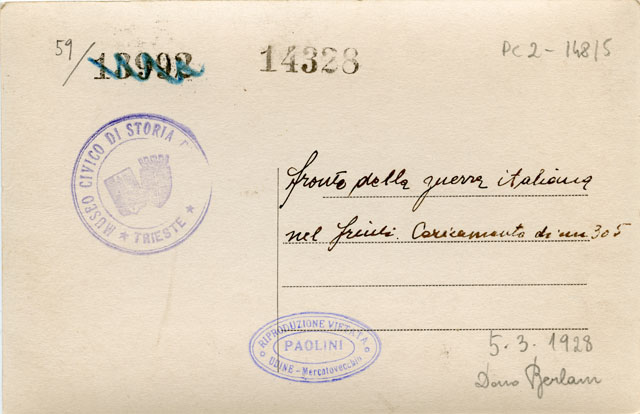 59/
13992
14328
PC 2 - 148/5
MUSEO CIVICO DI STORIA
★ TRIESTE ★
Fronte della guerra italiana
nel friuli. Caricamento di un 305
RIPRODUZIONE VIETATA
PAOLINI
UDINE - Mercatovecchio
5.3.1928
Dono Berlam